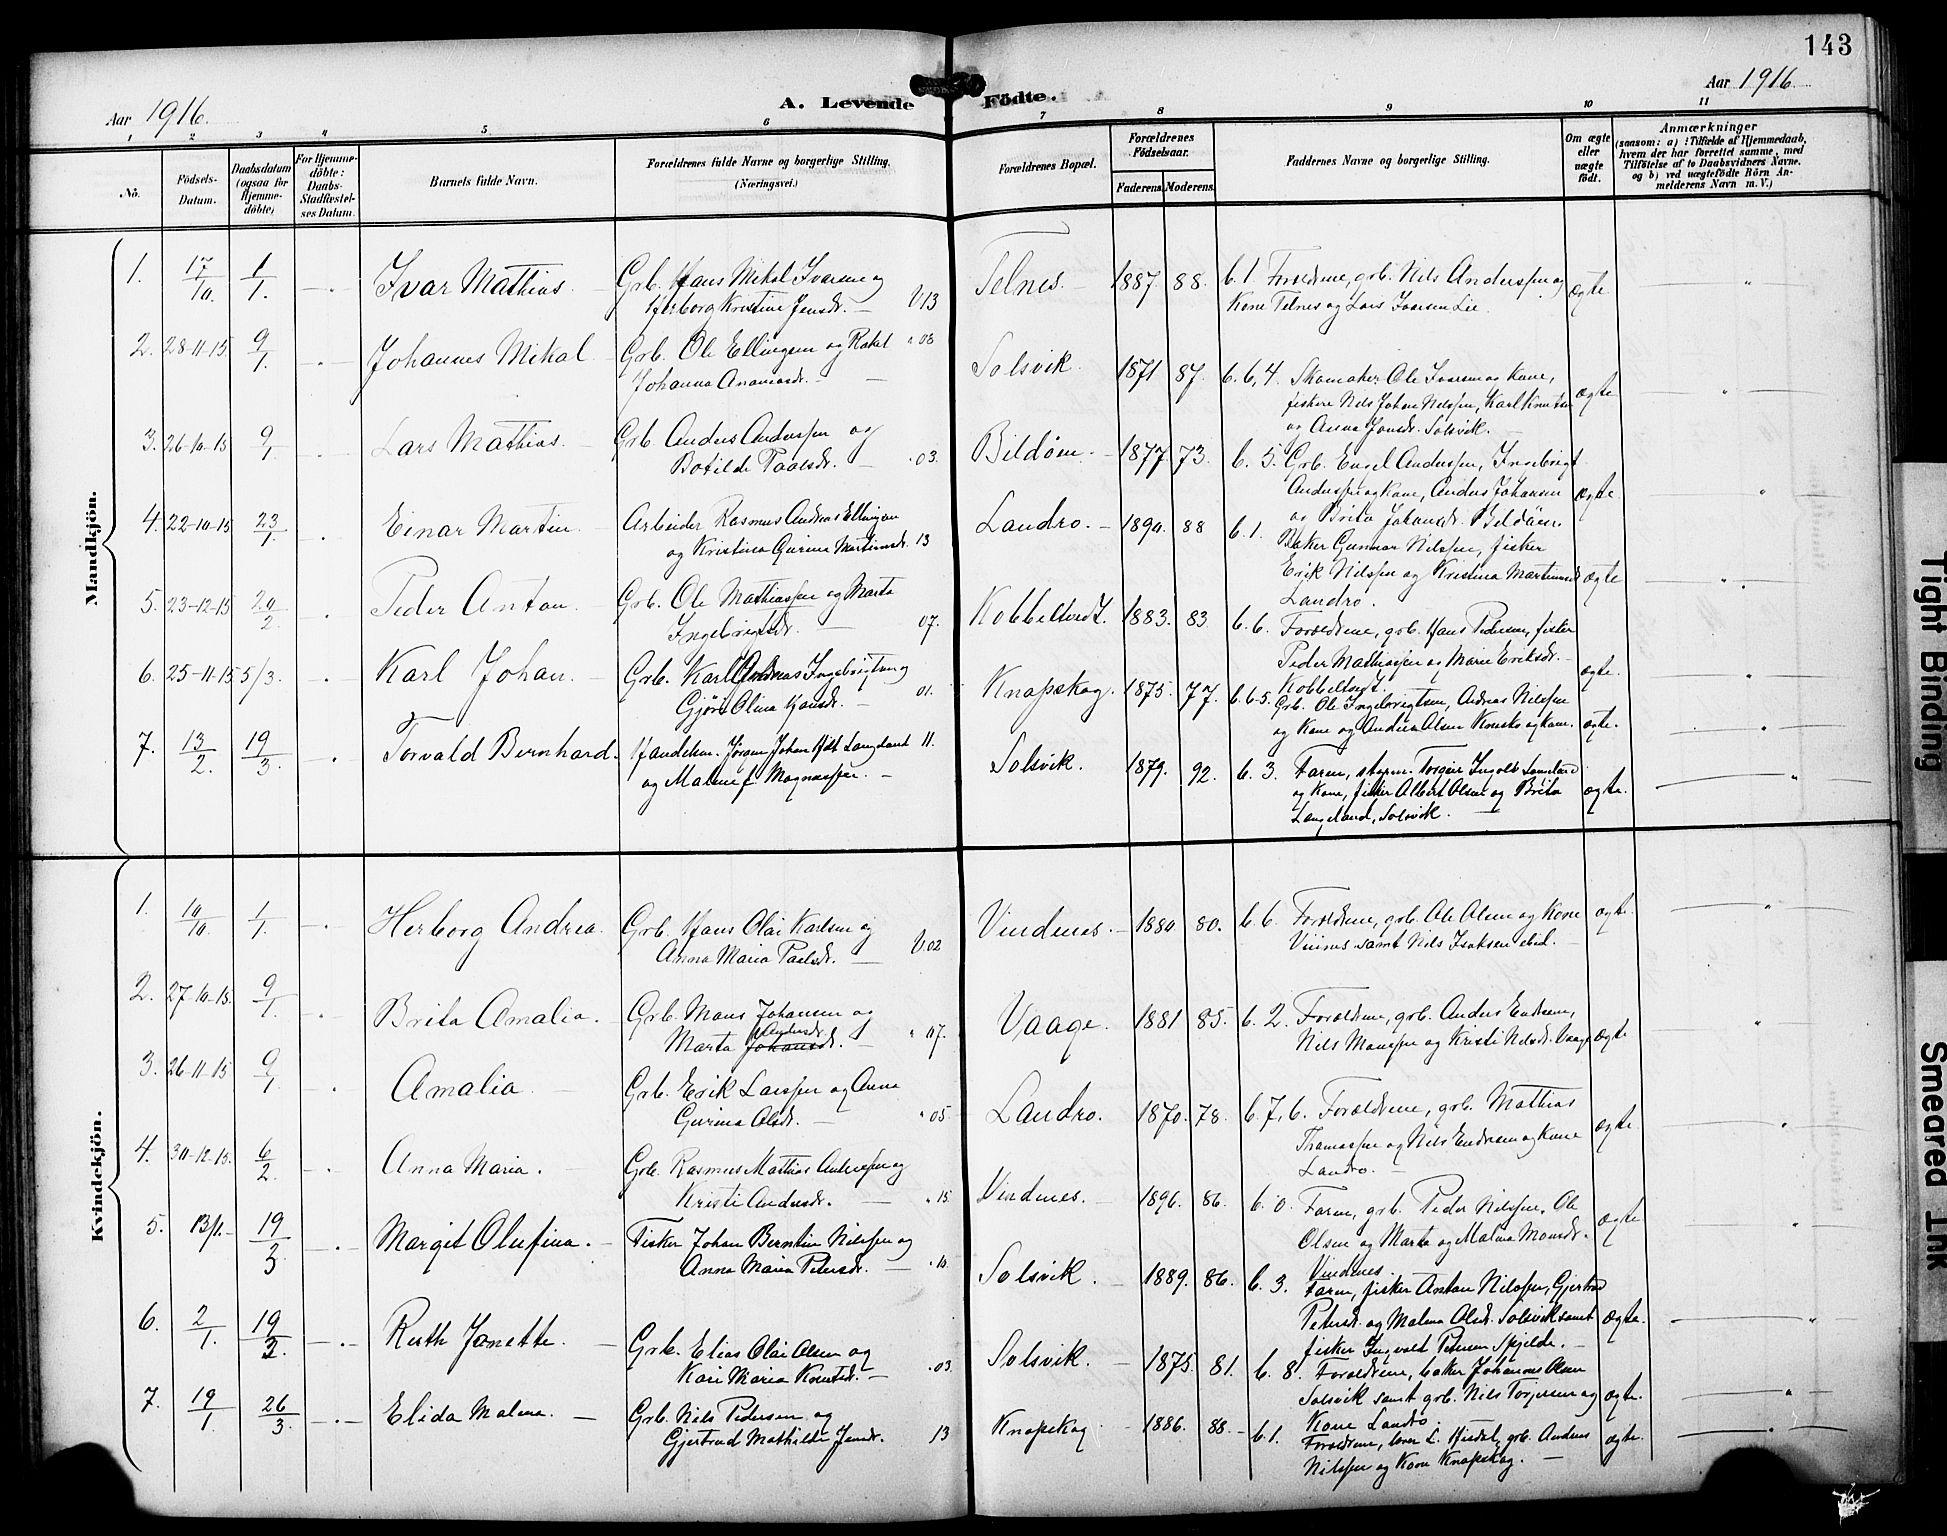 143
Aar 1916.
A. Levende Födte.
Aar 1916.
1 2 3 4 5 6 7 8 9 10 11
No.
Födsels-Datum.
Daabsdatum (ogsaa for Hjemme-döbte)
For Hjemme-döbte: Daabs-Stadfæstelses Datum.
Barnets fulde Navn.
Forældrenes fulde Navne og borgerlige Stilling. (Næringsvei.)
Forældrenes Bopæl.
Forældrenes Födselsaar.
Faderens. Moderens.
Faddernes Navne og borgerlige Stilling.
Om ægte eller uægte födt.
Anmærkninger
(saasom: a) i Tilfælde af Hjemmedaab, hvem der har forrettet samme, med Tilföielse af to Daabsvidners Navne. og b) ved uægtefödte Börn Anmelderens Navn m. V.)
Mandkjön.
1. 17/10. 1/1. Ivar Mathias Grb. Hans Mikal Ivarsen og Herborg Kristine Jensdr. V. 13 Telnes. 1887. 88. b. 1. Forældrene, grb. Nils Anderssen og Kone Telnes og Lars Ivarsen Lie. ægte
2. 28-11-15. 9/1. Johannes Mikal Grb. Ole Ellingsen og Rakel Johanna Ananiasdr. " 08 Solsvik. 1871 87. b. 6, 4. Skomaker Ole Ivarsen og Kone, fiskere Nils Johan Nilssen, Karl Knutsen og Anna Jonsdr. Solsvik. ægte
3. 26-10-15 9/1 Lars Mathias. Grb. Anders Anderssen og Botilde Paalsdr. " 03. Bildöen. 1877. 73. b. 5. Grb. Engel Anderssen, Ingebrigt Anderssen og Kone, Anders Johansen og Brita Johansdr. Bildöen. ægte
4. 22-10-15 23/1. Einar Martin. Arbeider Rasmus Andreas Ellingsen og Kristina Gurine Martinusdr. 13 Landro. 1890. 88 b. 1. Baker Gunnar Nilssen, fisker Erik Nilssen og Kristina Martinusdr. Landro. ægte
5. 23-12-15 20/2. Peder Anton. Grb. Ole Mathiassen og Marta Ingebrigtsdr. 07. Kobbeltvedt. 1883. 83 b. 6. Forældrene, grb. Hans Pedersen, fisker Peder Mathiassen og Marie Eriksdr. Kobbeltvedt. ægte.
6. 25-11-15 5/3. Karl Johan. Grb. Karl Andreas Ingebrigtsen og Gjöre Olina Hansdr. 01. Knapskog. 1875. 77. b. 6-5. Grb. Ole Ingebrigtsen, Andreas Nilssen og Kone og Anders Olsen og Kone. ægte.
7. 13/2. 19/3. Torvald Bernhard. Handelsm. Jörgen Johan Langeland og Malene f. Magnussen. 11. Solsvik. 1879. 92. b. 3. Faren, Torgeir Ingolv Langeland og Kone, fisker Albert Olsen og Brita Langeland, Solsvik. ægte.
Kvindekjön.
1. 10/10. 1/1. Herborg Andrea. Grb. Hans Olai Karlsen og Anna Maria Paalsdr. V. 02 Vindenes. 1880. 80. b. 6. Forældrene, grb. Ole Olsen og Kone samt Nils Isaksen ibid. ægte.
2. 27-10-15. 9/1. Brita Amalia. Grb. Mons Johansen og Marta Johansdr. Andersdr. " 07. Vaage. 1881 85. b. 2. Forældrene, grb. Anders Endresen, Nils Monssen og Kristi Nilsdr. Vaage ægte
3. 26-11-15 9/1 Amalia. Grb. Erik Larssen og Anna Gurina Olsdr. " 05 Landro. 1870. 78. b. 7, 6. Forældrene, grb. Mathias Thomassen og Nils Endresen og Kone Landro. ægte
4. 30-12-15. 6/2. Anna Maria. Grb. Rasmus Mathias Anderssen og Kristi Andersdr. " 15 Vindenes. 1896. 86. b. 0. Faren, grb. Peder Nilssen, Ole Olsen og Marta og Malina Monsdr. Vindenes. ægte
5. 13/1. 19/3 Margit Olufina. Fisker Johan Berntin Nilssen og Anna Maria Petersdr. " 10. Solsvik. 1889. 86. b. 3. Faren, fisker Anton Nilssen, Gjertrud Petersdr. og Malena Olsdr. Solsvik samt fisker Ingvald Petersen Spjelde. ægte.
6. 2/1. 19/3. Ruth Janette. Grb. Elias Olai Olsen og Kari Maria Knutsdr. " 03 Solsvik. 1875. 81. b. 8. Forældrene, baker Johannes Olsen Solsvik samt grb. Nils Torgersen og Kone Landro. ægte.
7. 19/1. 26/3. Elida Malene. Grb. Nils Pedersen og Gjertrud Mathilde Jensdr. 13 Knapskog. 1886. 88. b. 1. Forældrene, lærer L. Hisdal, grb. Anders Nilssen og Kone Knapskog. ægte.
Tight Binding
Smeared Ink